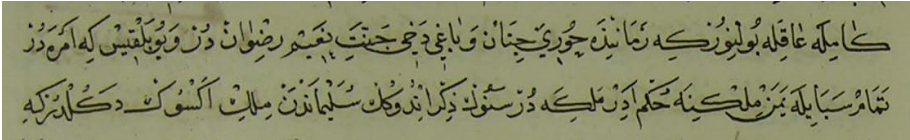 كامله عاقله بولنور كه زماننده حوري جنان و باغي دخي جنت نعيم رضوان در و بو بلقيس كه امره در
تمام سبا يله يمن ملكينه حكم ادر ملكه در سنوك ذكر اندوكك سليماندن ملك اكسوك دكلدر كه